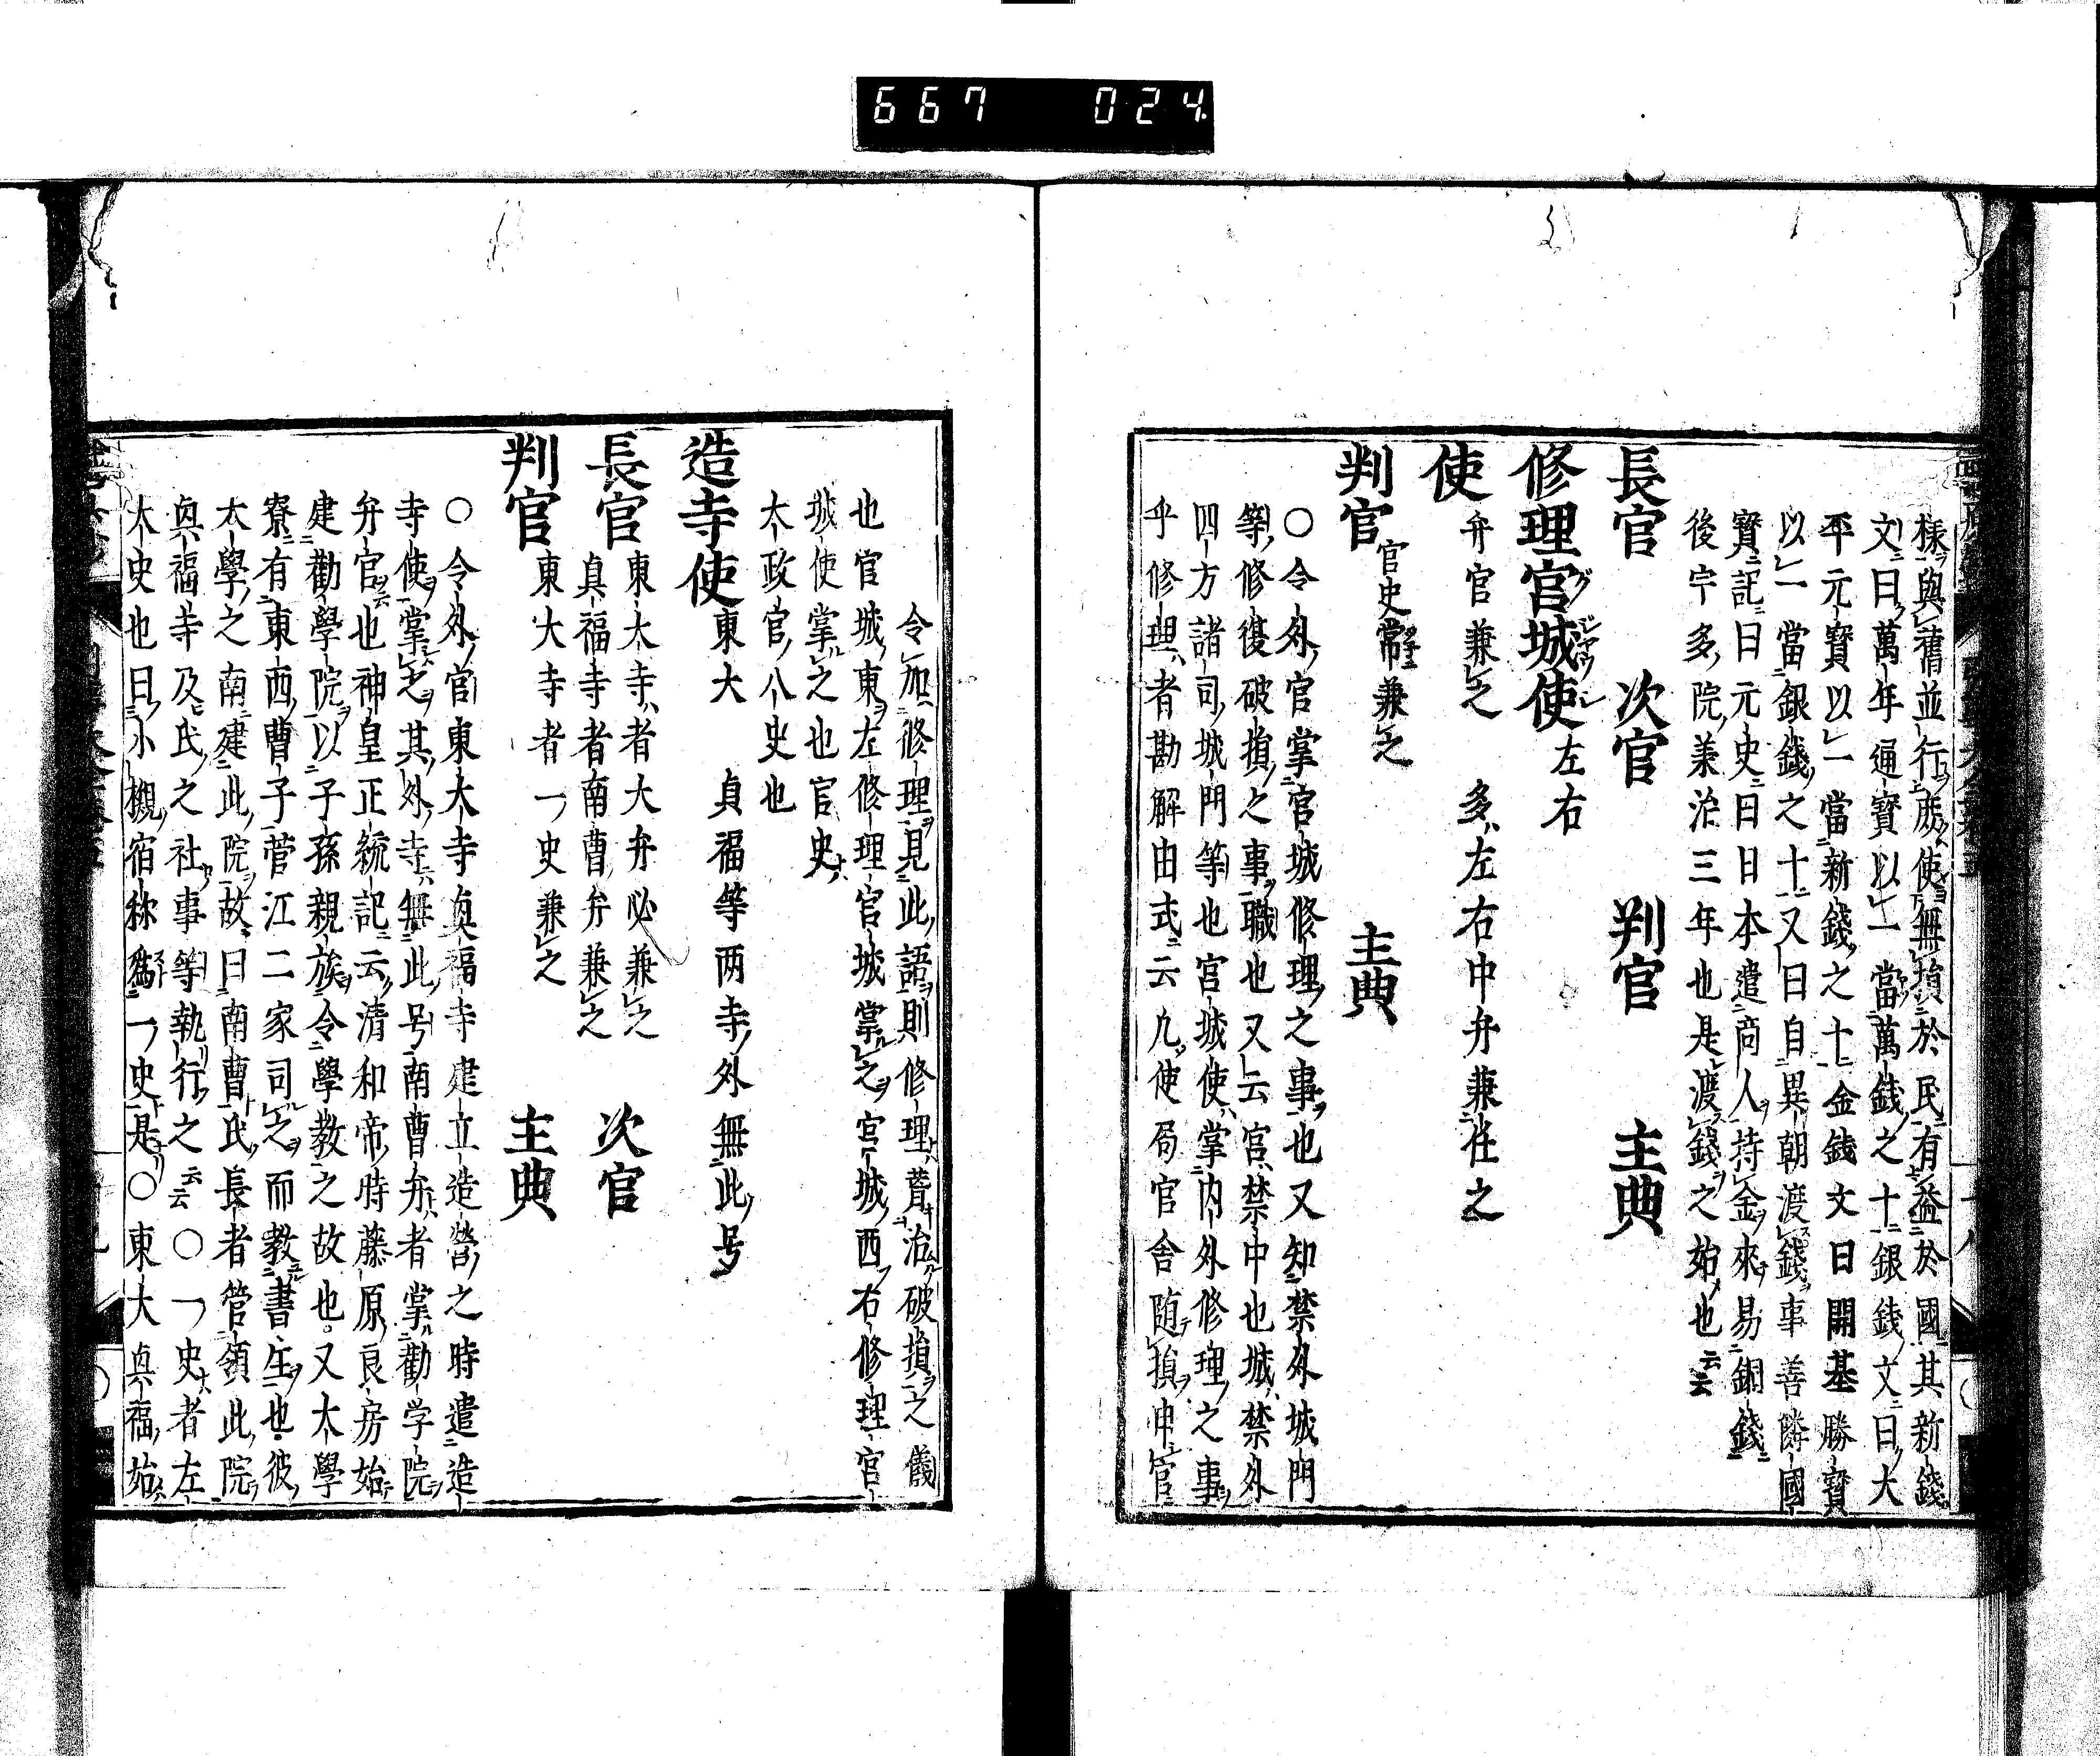 667 024
樣與舊並行庶使無損於民有益於國其新錢
文曰萬年通寶以一當萬錢之十銀錢文曰大
平元寶以一當新錢之十金錢文曰開基勝寶
以一當銀錢之十又曰自異朝渡錢事善隣國
寶記曰元史曰日本遣商人持金來易銅錢
後宇多院兼治三年也是渡錢之始也云云
長官 次官 判官 主典
修理官城使左右
使弁官兼之 多左右中弁兼任之
判官官史常兼之 主典
○令外官掌官城修理之事也又知禁外城門
等修復破損之事職也又云宮禁中也城禁外
四方諸司城門等也宮城使掌内外修理之事
乎修理者勘解由式云九使局官舍随損申官
令加修理見此語則修理葺治破損之儀
也官城東左修理官城掌之宮城西右修理官
城使掌之也官史
太政官八史也
造寺使東大 貞福等两寺外無此号
長官東大寺者大弁必兼之 真福寺者南曹弁兼之 次官
判官東大寺者一史兼之 主典
○令外官東大寺眞福寺建立造營之時遣造
寺使掌之其外寺無此号南曹弁者掌勸学院
弁官也神皇正統記云清和帝時藤原良房始
建勸學院以子孫親族令學教之故也又大學
寮有東西曹子菅江二家司之而教書生也彼
大學之南建此院故曰南曹氏長者管領此院
眞福寺及氏之社事等執行之云云○一史者左
大史也曰小槻宿祢爲一史是○東大眞福始